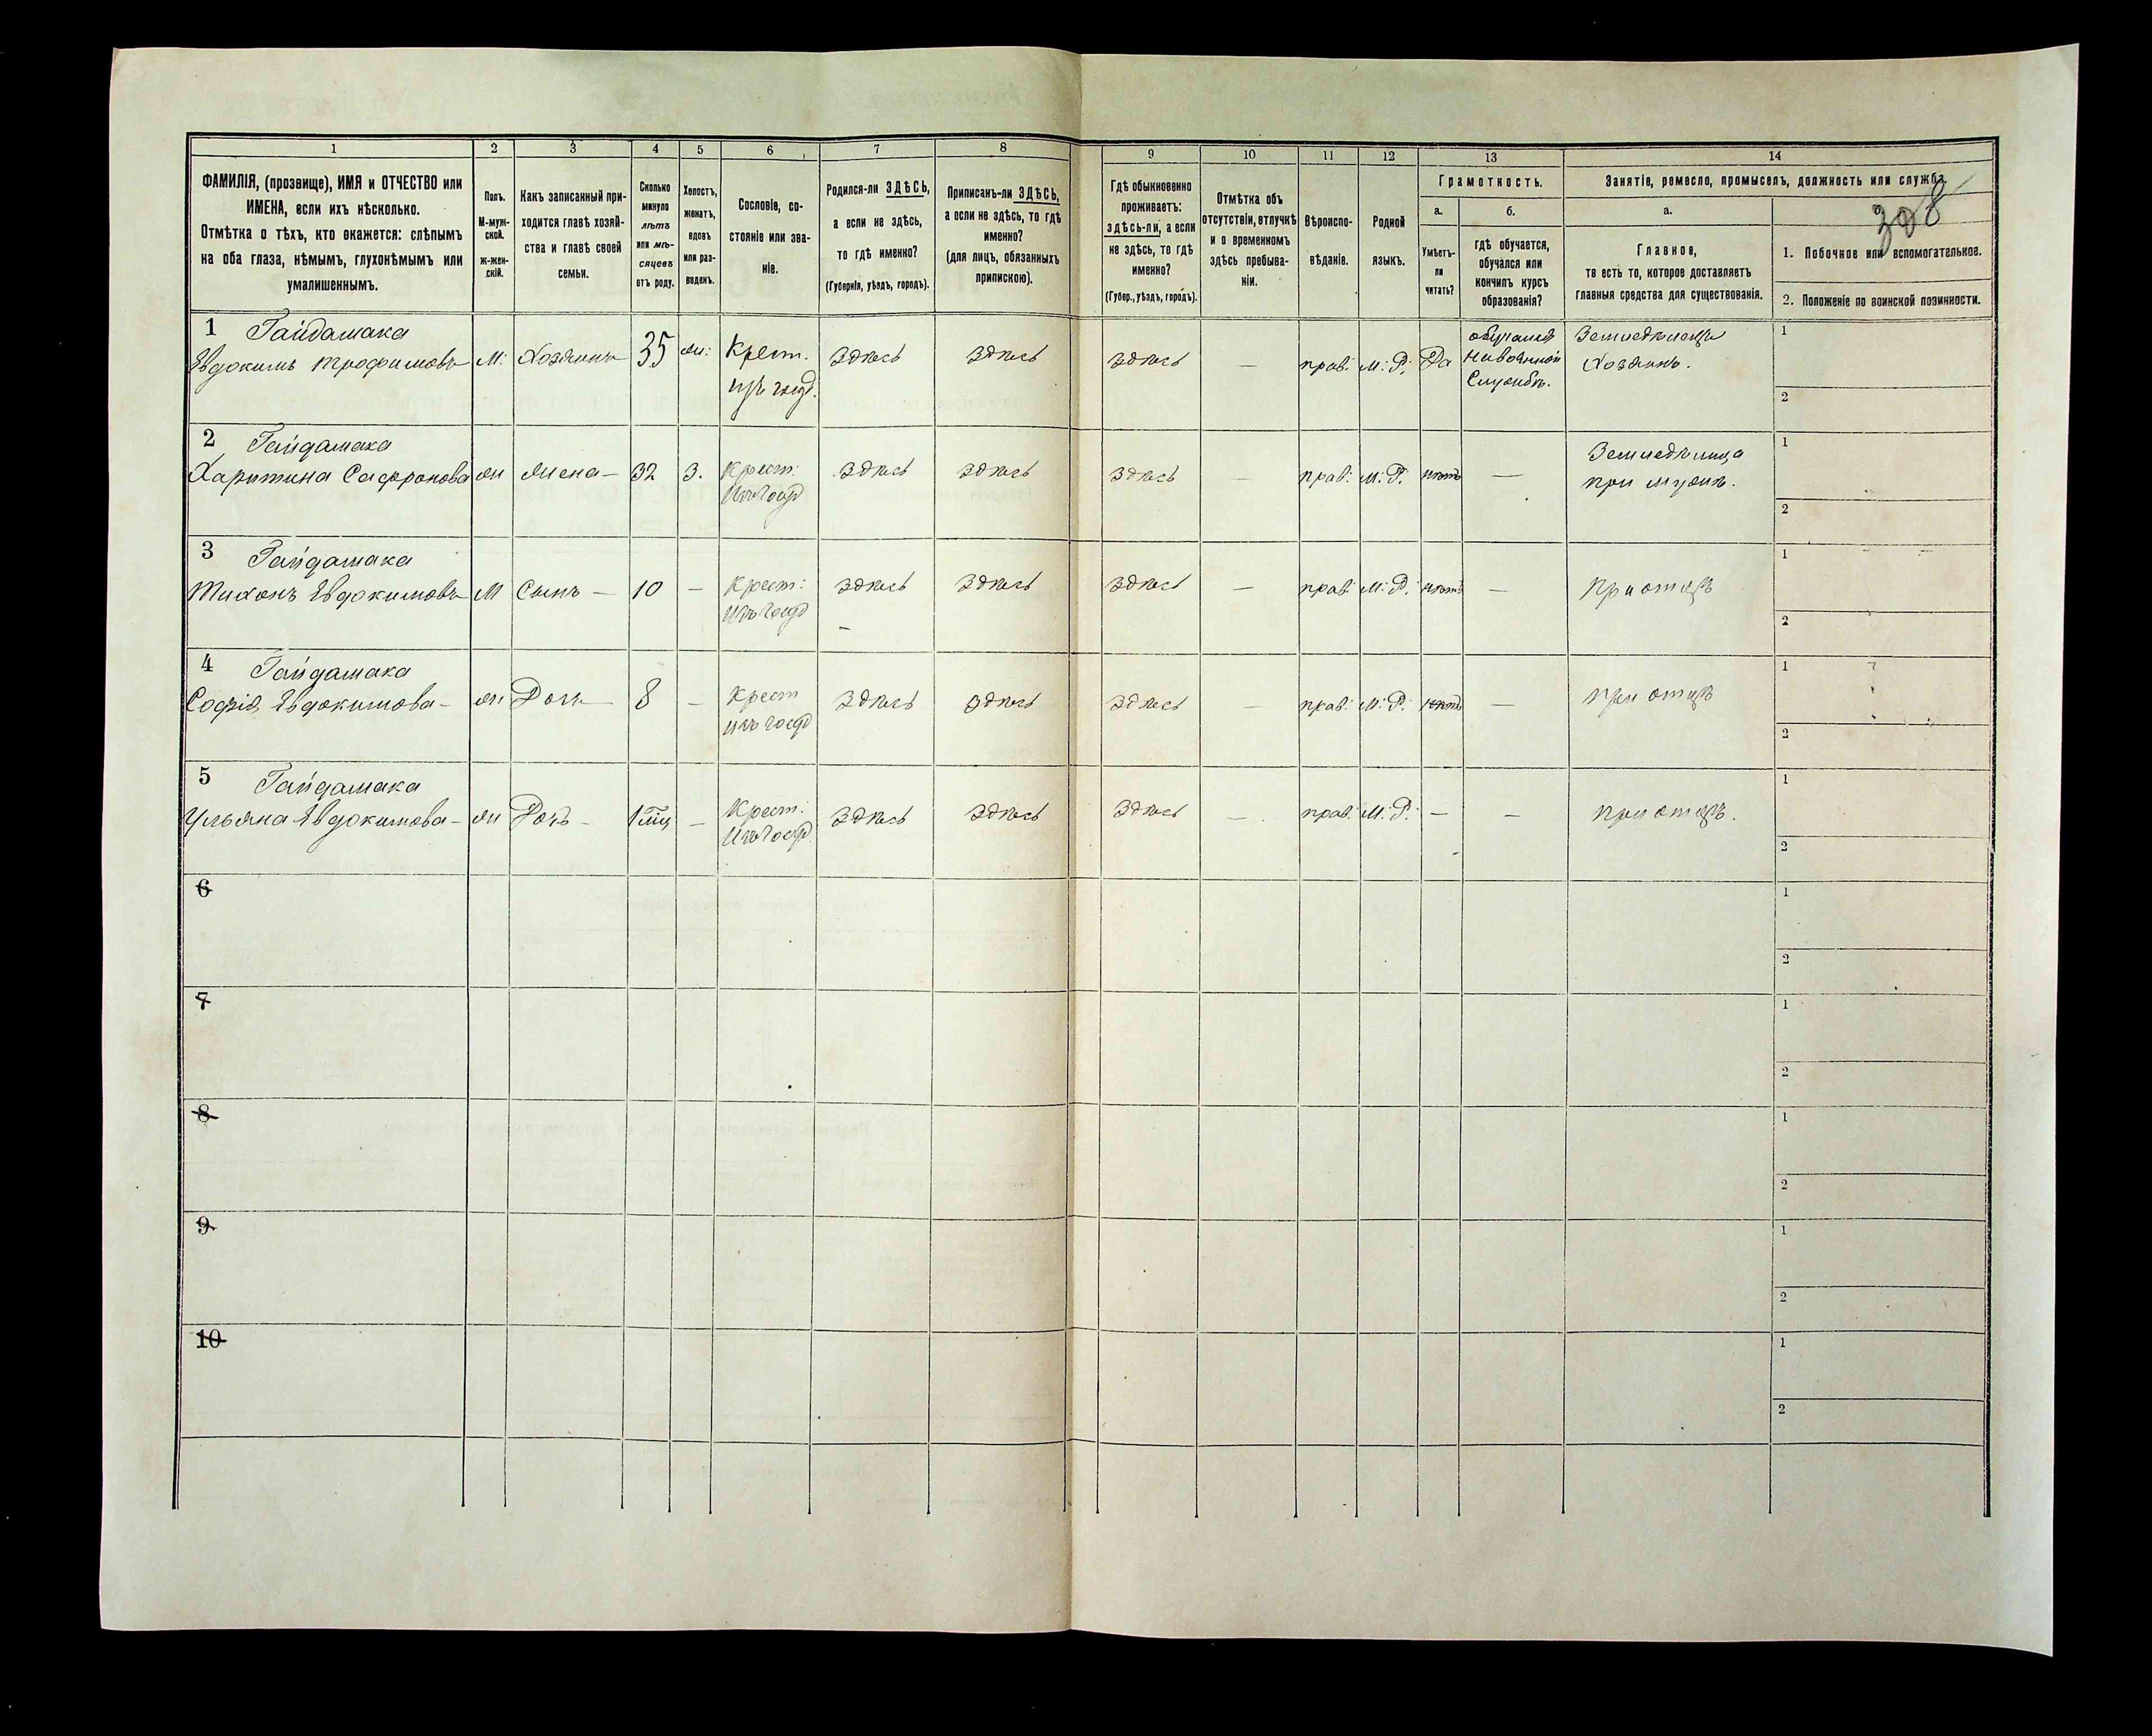 1 2 3 4 5 6 7 8 9 10 11 12 13 14
ФАМИЛІЯ, (прозвище), ИМЯ и ОТЧЕСТВО или
ИМЕНА, если ихъ нѣсколько.
Отмѣтка о тѣхъ, кто окажется: слѣпымъ
на оба глаза, нѣмымъ, глухонѣмымъ или
умалишеннымъ.
Полъ.
М-муж-
ской.
ж-жен-
скій.
Какъ записанный при-
ходится главѣ хозяй-
ства и главѣ своей
семьи.
Сколько
минуло
лѣтъ
или мѣ-
сяцевъ
отъ роду.
Холостъ,
женатъ,
вдовъ
или раз-
веденъ.
Сословіе, со-
стояніе или зва-
ніе.
Родился-ли ЗДѢСЬ,
а если не здѣсь,
то гдѣ именно?
(Губернія, уѣздъ, городъ).
Приписанъ-ли ЗДѢСЬ,
а если не здѣсь, то гдѣ
именно?
(для лицъ, обязанныхъ
припискою).
Гдѣ обыкновенно
проживаетъ:
здѣсь-ли, а если
не здѣсь, то гдѣ
именно?
(Губер., уѣздъ, городъ).
Отмѣтка объ
отсутствіи, отлучкѣ
и о временномъ
здѣсь пребыва-
ніи.
Вѣроиспо-
вѣданіе.
Родной
языкъ.
Грамотность.
а.
Умѣетъ-
ли
читать?
б.
гдѣ обучается,
обучался или
кончилъ курсъ
образованія?
Занятіе, ремесло, промыселъ, должность или служба.
а.
Главное,
то есть то, которое доставляетъ
главныя средства для существованія.
1. Побочное или вспомогательное.
2. Положеніе по воинской повинности.
1 Гайдамака обучался Земледѣлецъ 1
Евдокимъ Трофимовъ М. Хозяинъ 35 жн: Крест. здѣсь здѣсь здѣсь — прав. М: Р. Да на военной Хозяинъ.
изъ госуд. Службѣ. 2
2 Гайдамака Земледѣлица 1
Харитина Сафронова жн Жена — 32 З. Крест: здѣсь здѣсь здѣсь — прав: М: Р. нѣтъ — при мужѣ.
Изъ госуд 2
3 Гайдамака 1
Тихонъ Евдокимовъ М Сынъ — 10 — Крест: здѣсь здѣсь здѣсь — прав: М: Р. нѣтъ — При отцѣ
Изъ госуд 2
4 Гайдамака 1
Софія Евдокимова — жн Дочь — 8 — Крест здѣсь здѣсь здѣсь — прав: М: Р. нѣтъ — при отцѣ
изъ госуд 2
5 Гайдамака 1
Ульяна Евдокимова — жн Дочь — 1 — Крест: здѣсь здѣсь здѣсь — прав: М: Р. — — при отцѣ.
Изъ госуд 2
6 1
2
7 1
2
8 1
2
9 1
2
10 1
2